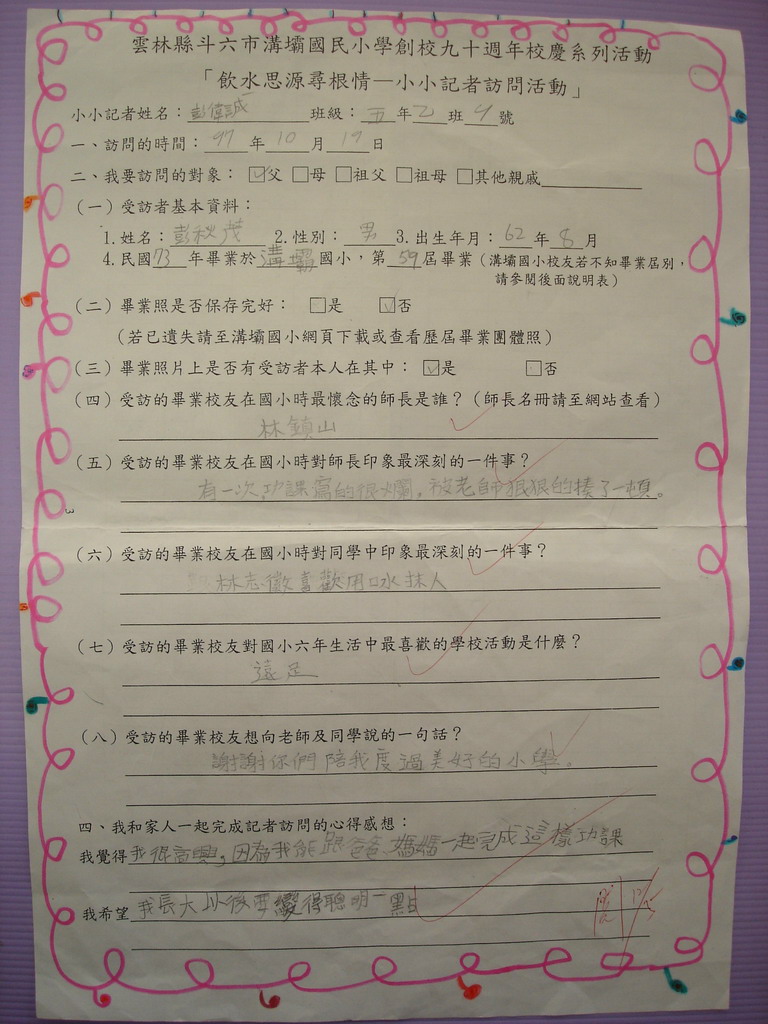 雲林縣斗六市溝壩國民小學創校九十週年校慶系列活動
「飲水思源尋根情—小小記者訪問活動」
小小記者姓名：彭偉誠 班級：五年乙班4號
一、訪問的時間：97年10月19日
二、我要訪問的對象：☑父 □母 □祖父 □祖母 □其他親戚
（一）受訪者基本資料：
1.姓名：彭秋茂 2.性別：男 3.出生年月：62年8月
4.民國73年畢業於溝壩國小，第59屆畢業（溝壩國小校友若不知畢業屆別，
請參閱後面說明表）
（二）畢業照是否保存完好：□是 ☑否
（若已遺失請至溝壩國小網頁下載或查看歷屆畢業團體照）
（三）畢業照片上是否有受訪者本人在其中：☑是 □否
（四）受訪的畢業校友在國小時最懷念的師長是誰？（師長名冊請至網站查看）
林鎮山
（五）受訪的畢業校友在國小時對師長印象最深刻的一件事？
有一次功課寫的很爛，被老師狠狠的揍了一頓。
（六）受訪的畢業校友在國小時對同學中印象最深刻的一件事？
林志徵喜歡用口水抹人
（七）受訪的畢業校友對國小六年生活中最喜歡的學校活動是什麼？
遠足
（八）受訪的畢業校友想向老師及同學說的一句話？
謝謝你們陪我度過美好的小學。
四、我和家人一起完成記者訪問的心得感想：
我覺得我很高興，因為我能跟爸爸、媽媽一起完成這樣功課
我希望我長大以後要變得聰明一點